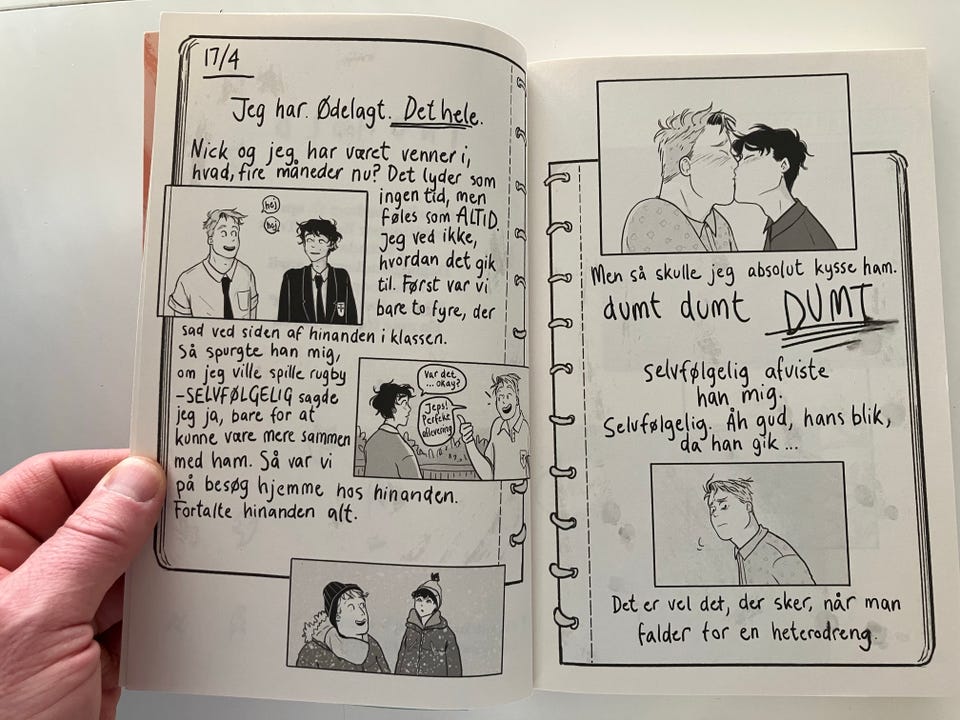 17/4
Jeg har. Ødelagt. Det hele.
Nick og jeg har været venner i,
hvad, fire måneder nu? Det lyder som
ingen tid, men
føles som ALTID.
Jeg ved ikke,
hvordan det gik
til. Først var vi
bare to fyre, der
hej
hej
sad ved siden af hinanden i klassen.
Så spurgte han mig,
om jeg ville spille rugby
–SELVFØLGELIG sagde
jeg ja, bare for at
kunne være mere sammen
med ham. Så var vi
på besøg hjemme hos hinanden.
Fortalte hinanden alt.
Var det
... okay?
Jeps!
Perfekt
aflevering
Men så skulle jeg absolut kysse ham.
dumt dumt DUMT
Selvfølgelig afviste
han mig.
Selvfølgelig. Åh gud, hans blik,
da han gik ...
Det er vel det, der sker, når man
falder for en heterodreng.